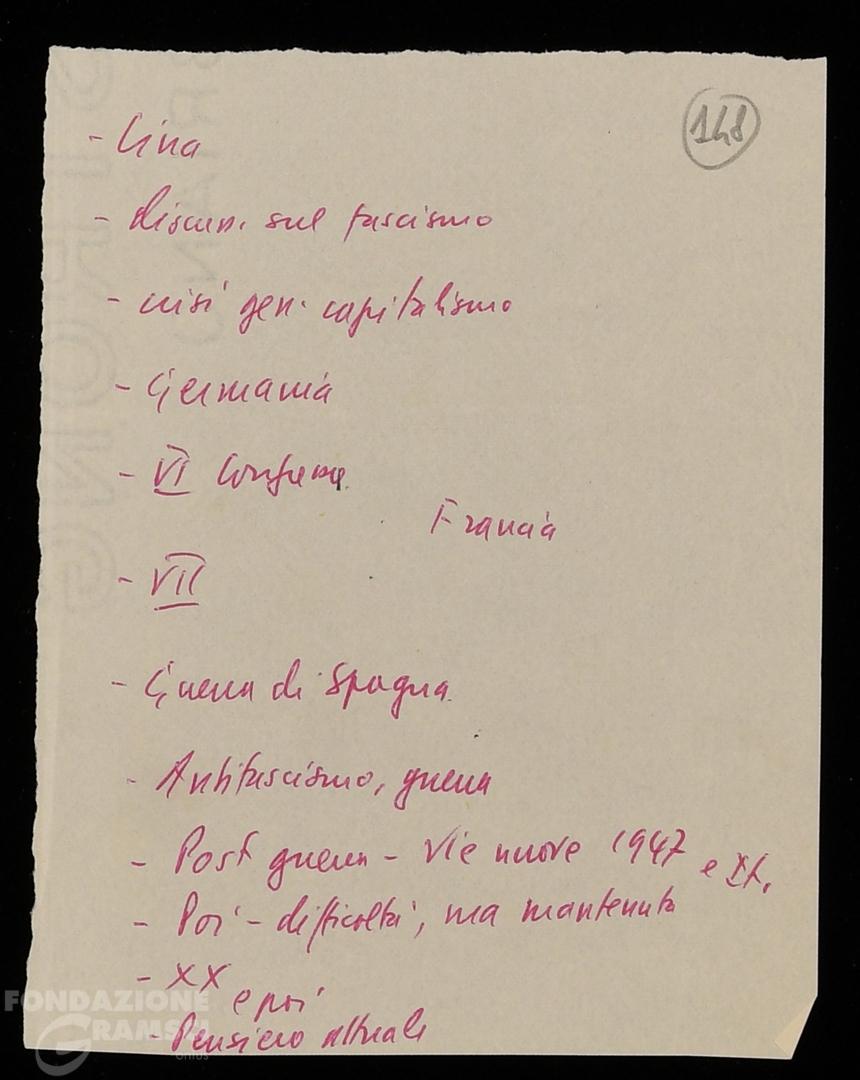 148
- Cina
- discuss. sul fascismo
- crisi gen. capitalismo
- Germania
- VI Congresso
Francia
- VII
- Guerra di Spagna
- Antifascismo, guerra
- Post guerra - Vie nuove 1947 e It.
- Poi - difficoltà, ma mantenuta
- XX e poi
- Pensiero attuale
FONDAZIONE
GRAMSCI
onlus